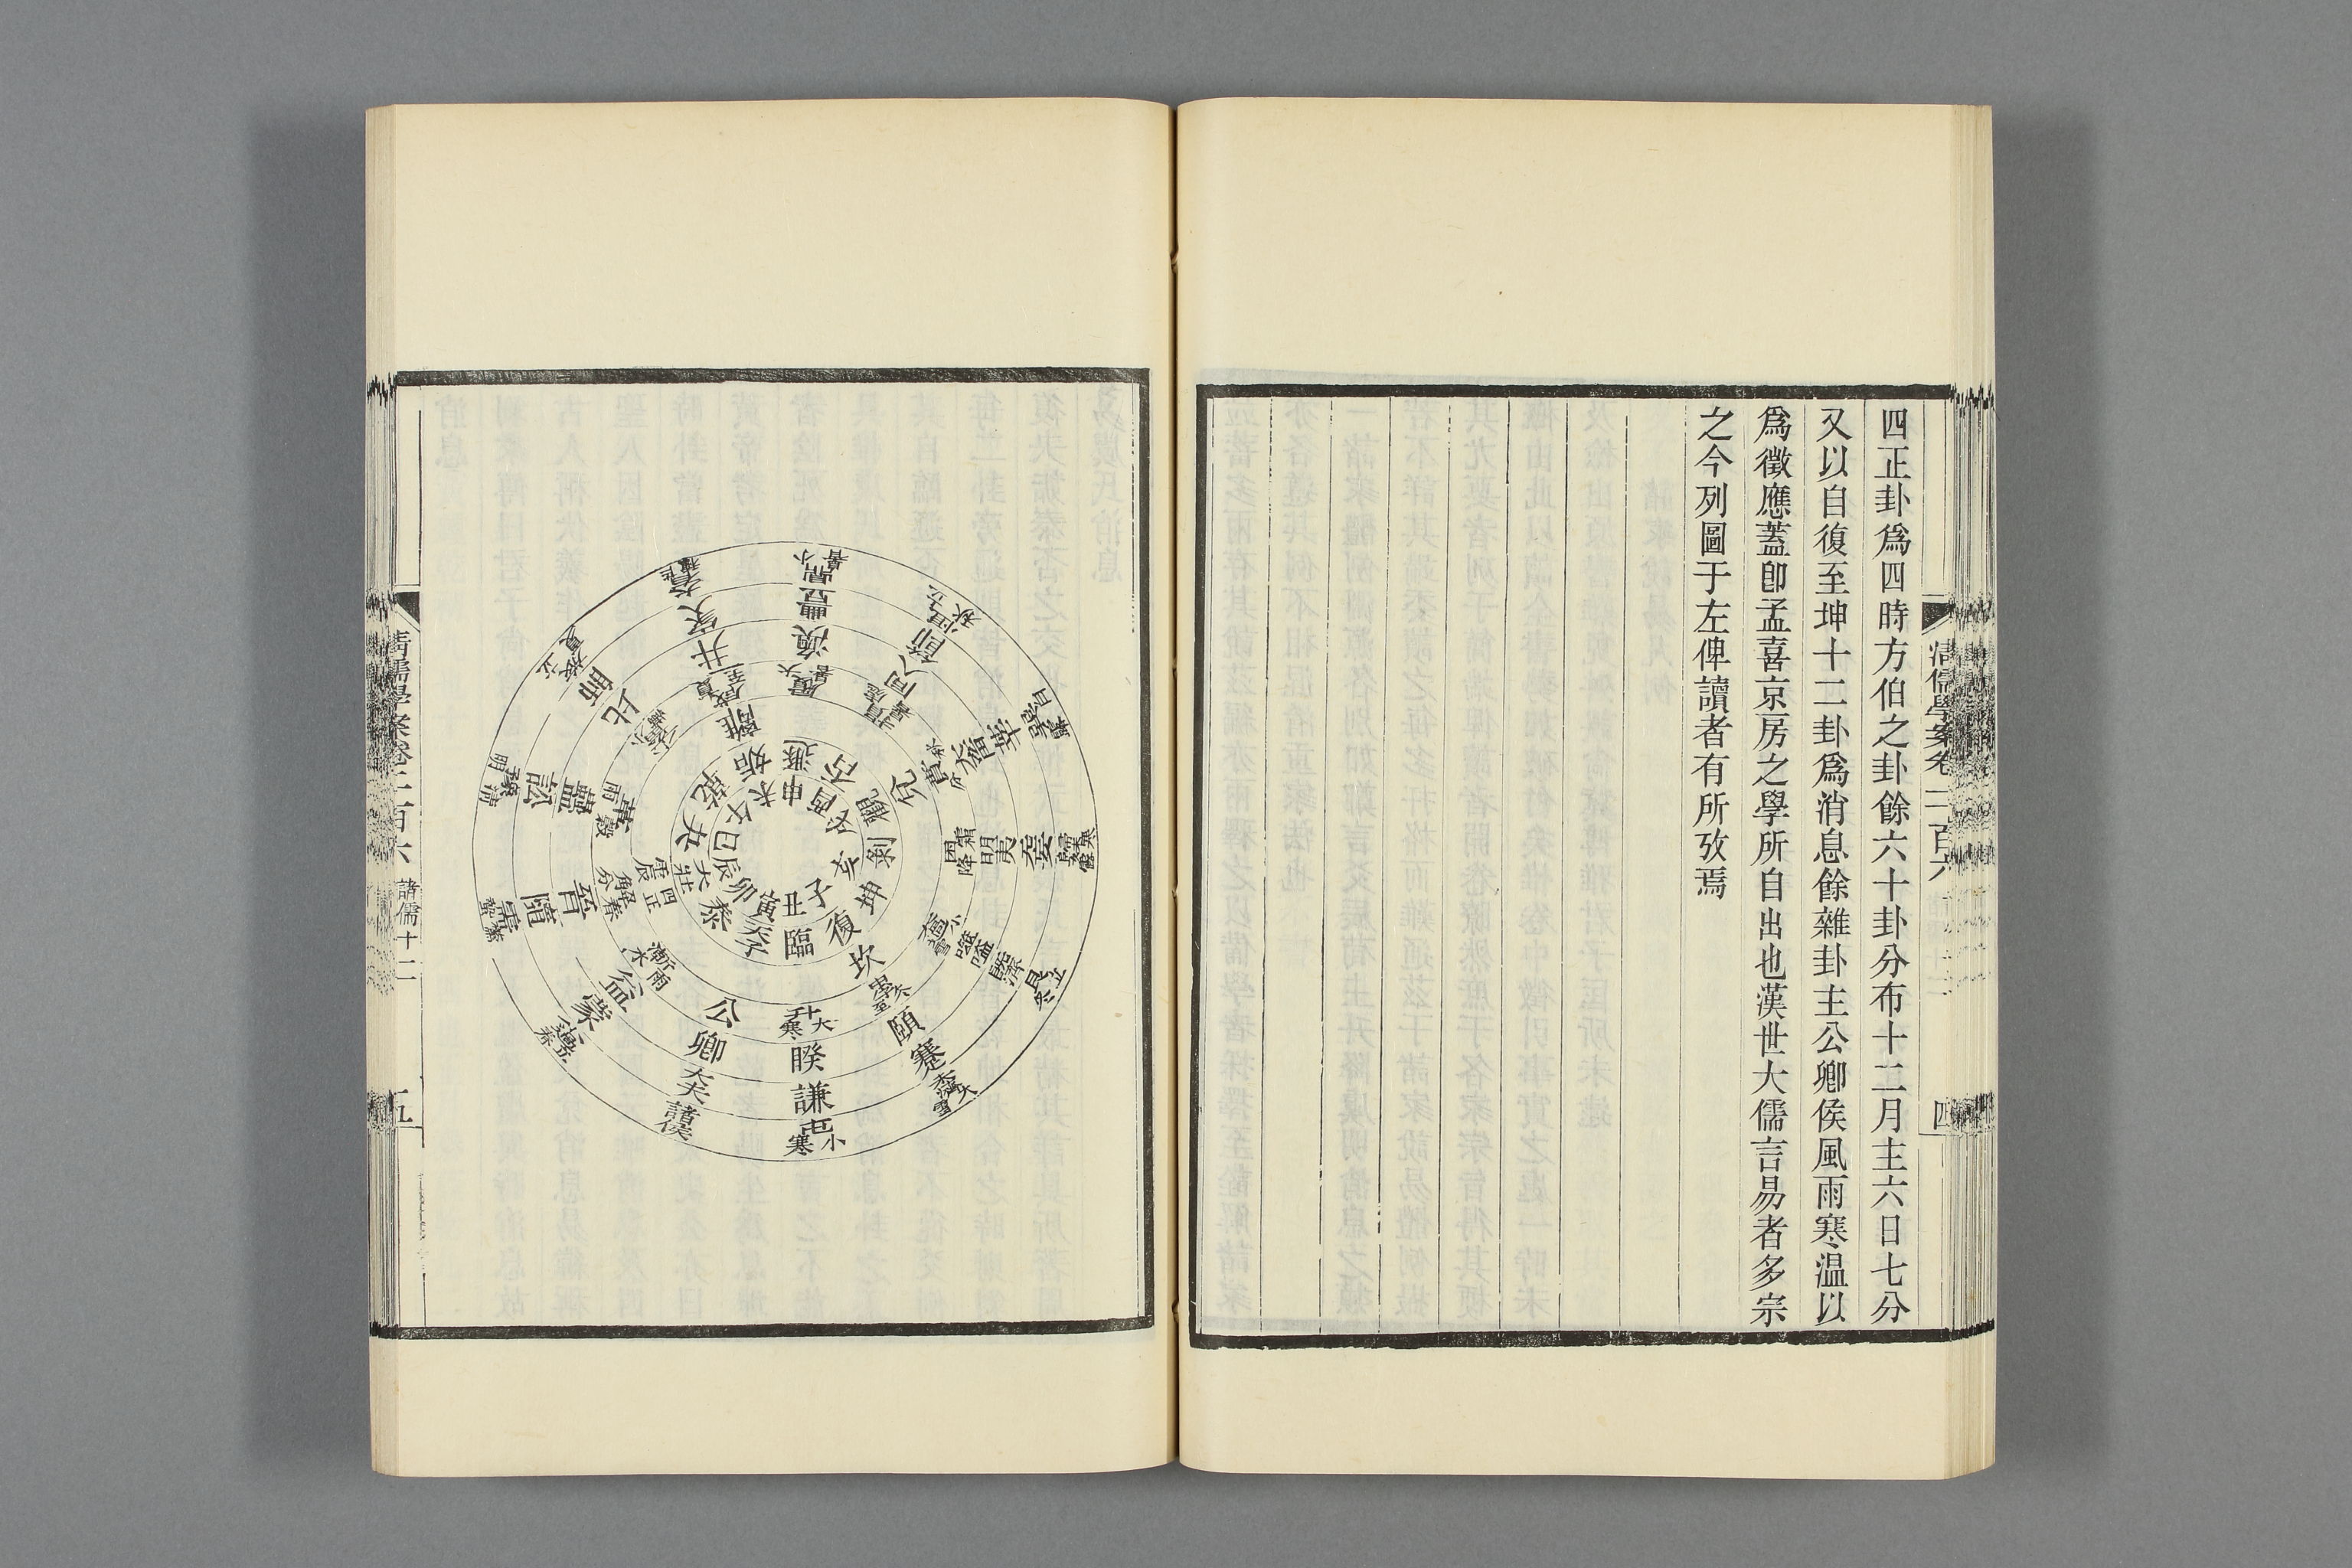 四正卦爲四時方伯之卦餘六十卦分布十二月主六日七分
又以自復至坤十二卦爲消息餘雜卦主公卿侯風雨寒温以
爲徵應蓋卽孟喜京房之學所自出也漢世大儒言易者多宗
之今列圖于左俾讀者有所攷焉
清儒學案卷二百六
四
子
丑
寅
卯
辰
巳
午
未
申
酉
戌
亥
復
臨
泰
大壯
夬
乾
姤
遯
否
觀
剝
坤
辟
四正
公
卿
大夫
諸侯
坎
離
兌
中孚 冬至
頤
蹇
未濟 大雪
升 大寒
睽
謙
屯 小寒
漸 雨水
益
蒙
小過 立春
解 春分
晉
隨
需 驚蟄
革 穀雨
蠱
訟
豫 清明
小畜 小滿
比
師
旅 立夏
咸 夏至
井
家人
大有 芒種
履 大暑
渙
豐
鼎 小暑
損 處暑
同人
節
恆 立秋
賁 秋分
大畜
萃
巽 白露
困 霜降
明夷
无妄
歸妹 寒露
大過 小雪
噬嗑
旣濟
艮 立冬
清儒學案卷二百六
諸儒十二
五